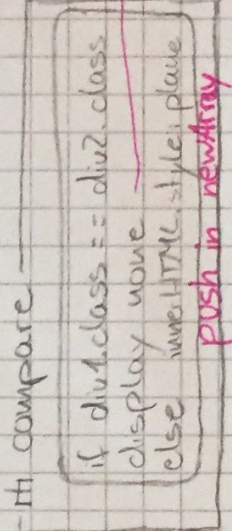 - III compare
if div1.class == div2.class
display none
else innerHTML.style: plane
push in newArray